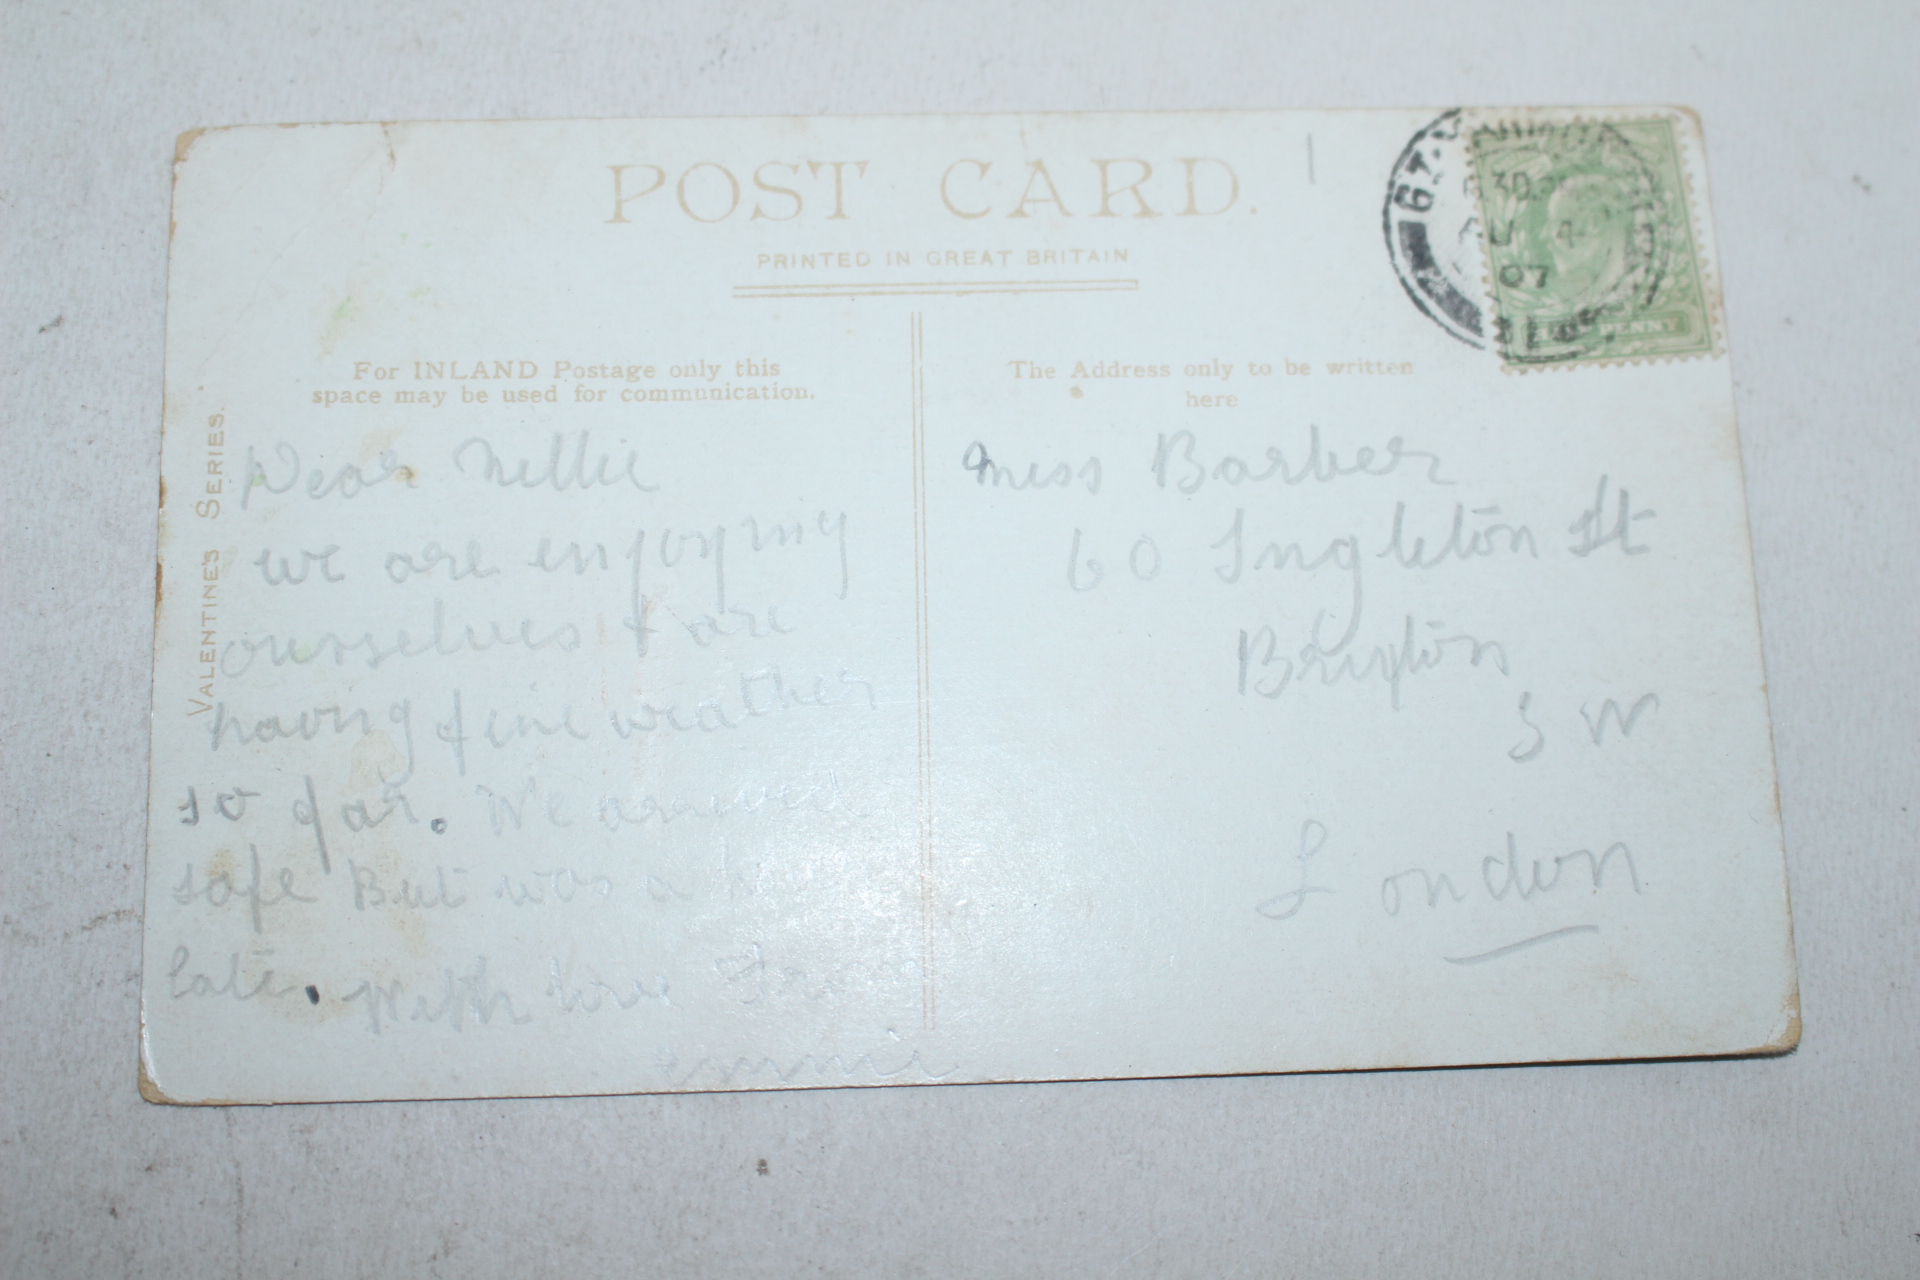 POST CARD.
PRINTED IN GREAT BRITAIN
For INLAND Postage only this
space may be used for communication.
The Address only to be written
here
VALENTINE'S SERIES.
Dear Nellie
we are enjoying
ourselves & are
having fine weather
so far. We arrived
safe But was a
late. With love From
emmie
Miss Barber
60 Ingleton St
Brixton
S W
London
GT. YARMOUTH
30
AU 4
07
HALFPENNY